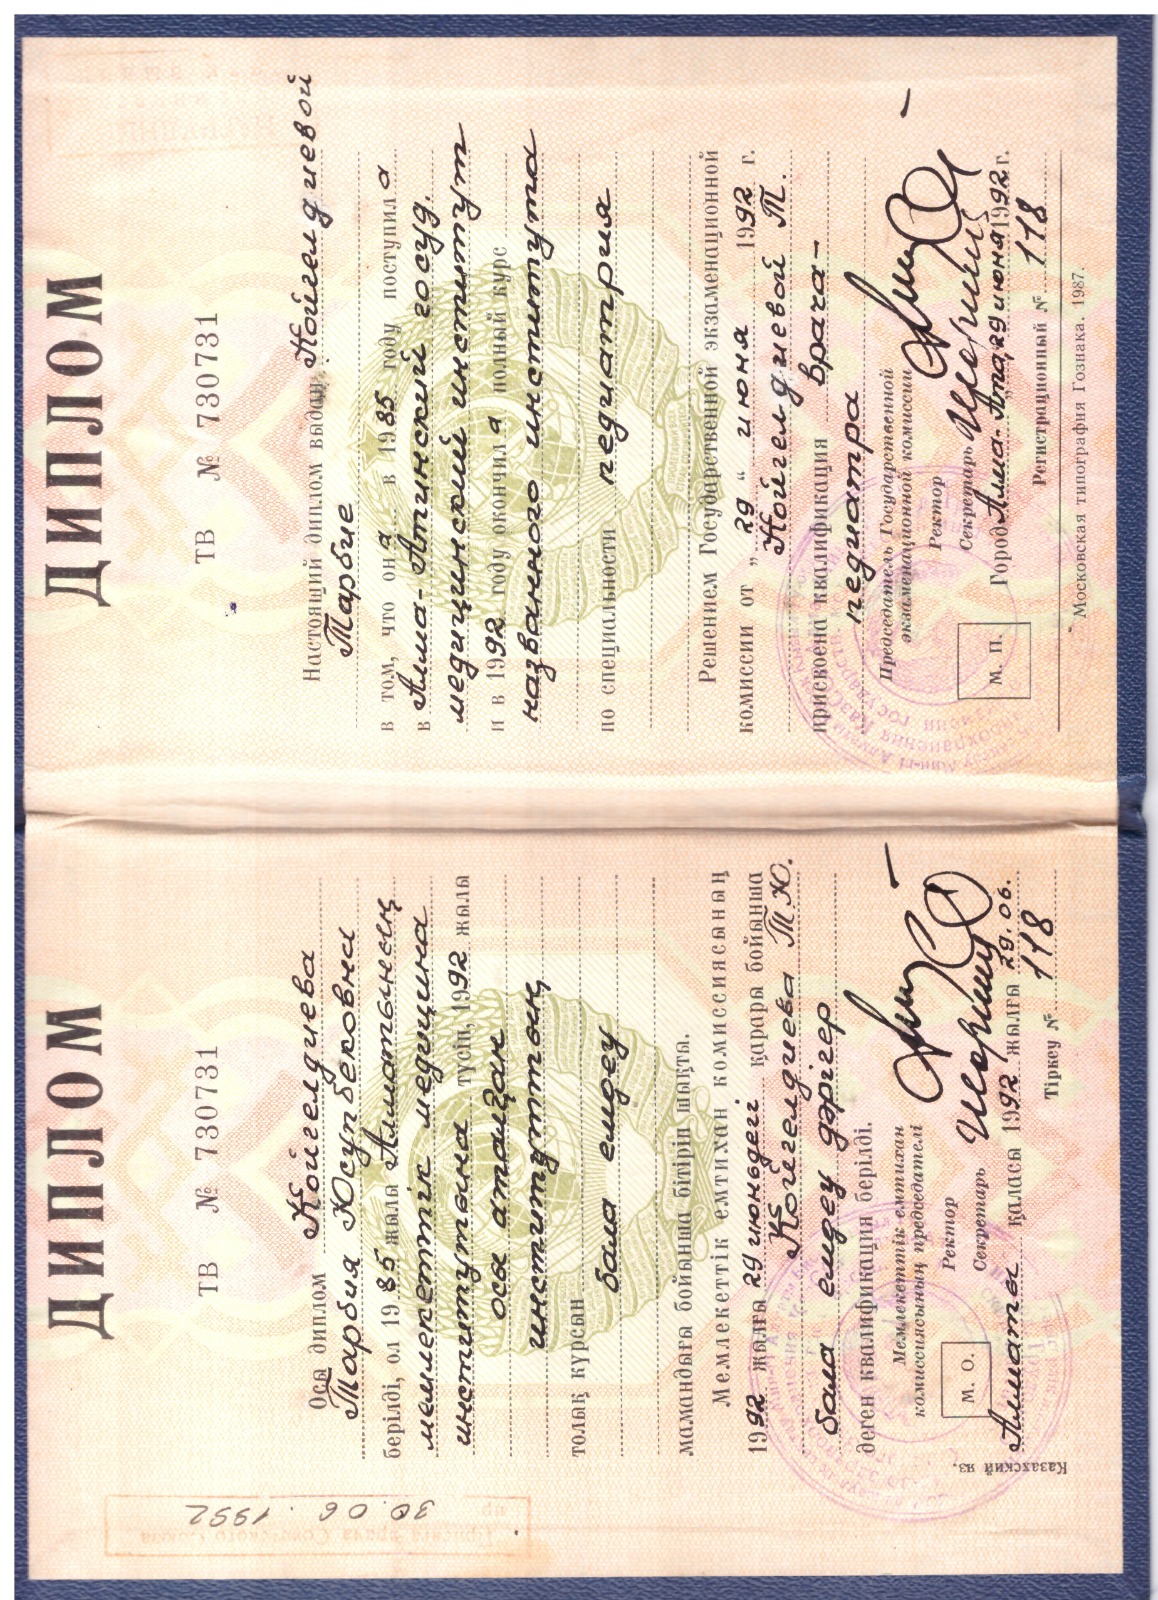 ДИПЛОМ
ТВ № 730731
Осы диплом Койгелдиева
Тарбия Юсупбековна
берілді, ол 1985 жылы Алматының
мемлекеттік медицина
институтына түсіп, 1992 жылы
осы аталған
институттың
толық курсын
бала емдеу
мамандығы бойынша бітіріп шықты.
Мемлекеттік емтихан комиссиясының
1992 жылғы 29 июньдегі қарары бойынша
Койгелдиева Т.Ю.
бала емдеу дәрігер
деген квалификация берілді.
Мемлекеттік емтихан
комиссиясының председателі
Ректор
Секретарь
М. О.
Алматы қаласы 1992 жылғы 29.06.
Тіркеу № 118
Казахский яз.
30.06.1992
ДИПЛОМ
ТВ № 730731
Настоящий диплом выдан Койгелдиевой
Тарбие
в том, что она в 1985 году поступила
в Алма-Атинский госуд.
медицинский институт
и в 1992 году окончила полный курс
названного института
по специальности педиатрия
Решением Государственной экзаменационной
комиссии от „29“ июня 1992 г.
Койгелдиевой Т.
присвоена квалификация врача-
педиатра
Председатель Государственной
экзаменационной комиссии
Ректор
Секретарь
М. П.
Город Алма-Ата, 29 июня 1992 г.
Регистрационный № 118
Московская типография Гознака. 1987.